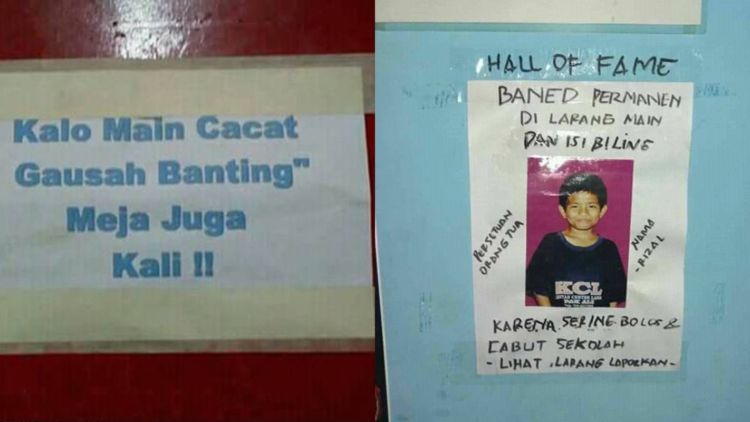 Kalo Main Cacat
Gausah Banting"
Meja Juga
Kali !!
HALL OF FAME
BANED PERMANEN
DI LARANG MAIN
DAN ISI BILING
PERSETUAN
ORANG TUA
NAMA
- RIZAL
KCL
KARENA SERING BOLOS &
CABUT SEKOLAH
- LIHAT, LARANG LAPORKAN -